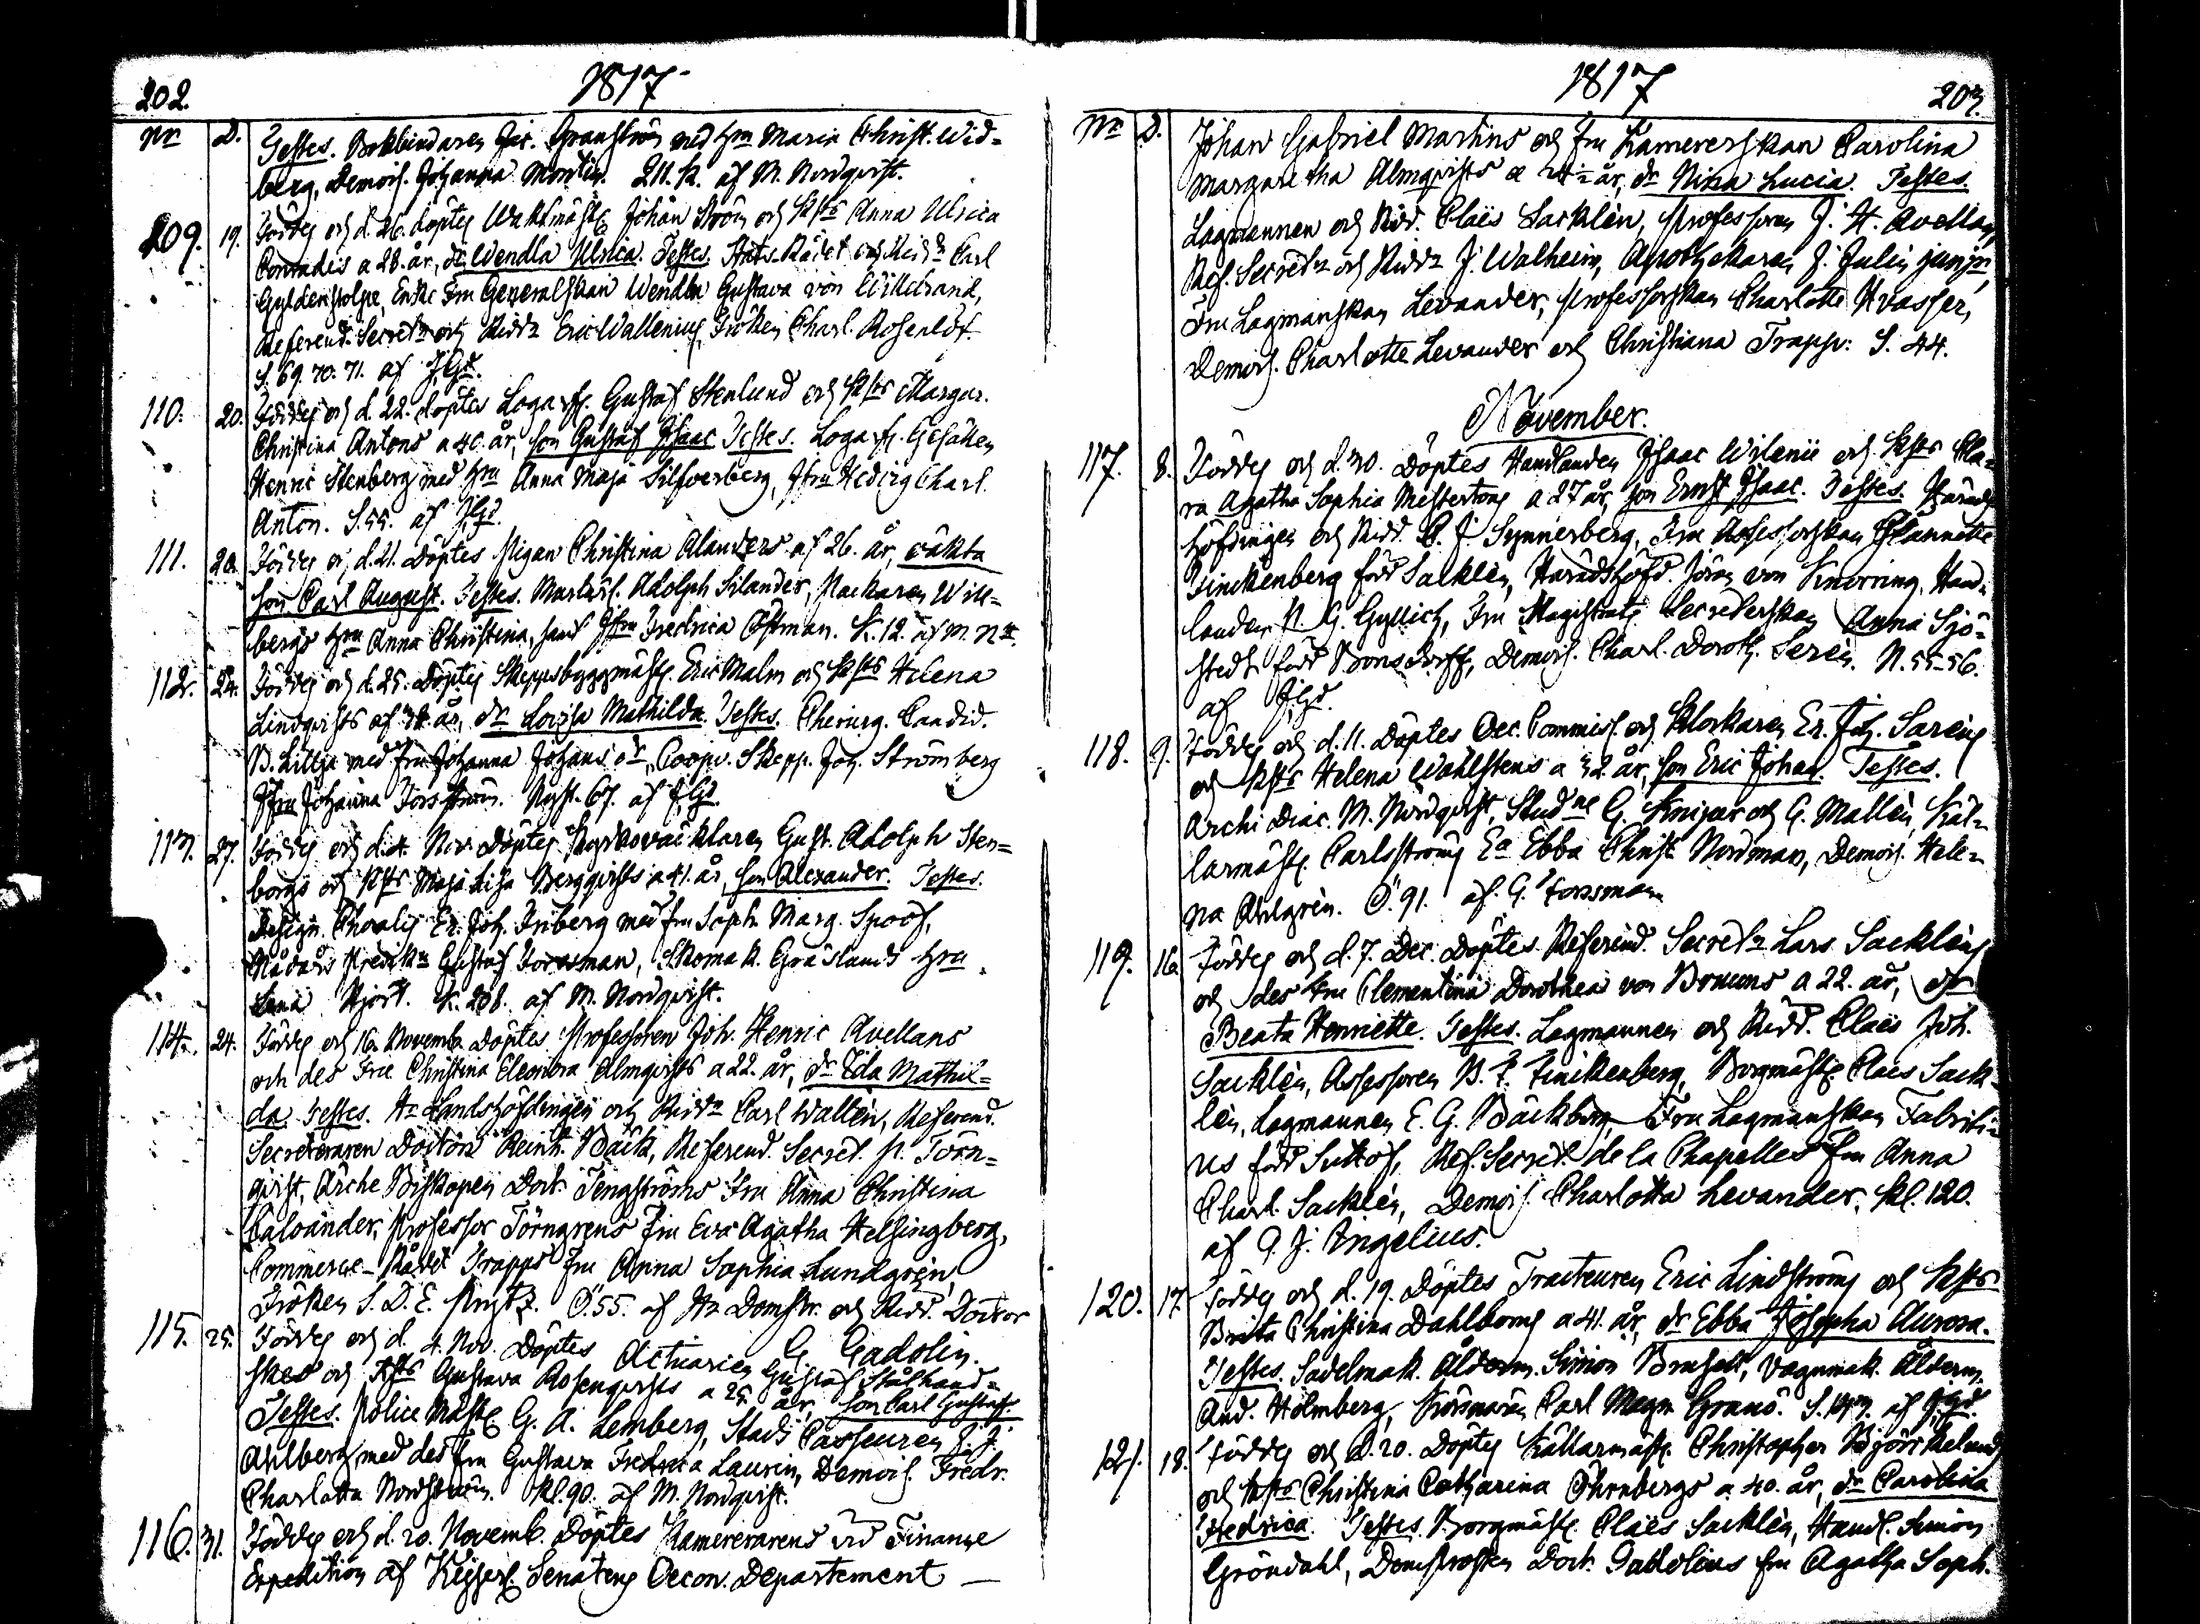 202.
1817
Nr D.
Testes. Bokbindaren Jac. Granström med hru Maria Christ. Wid=
berg, Demois. Johanna Montin. 211. K. af M. Nordqvist.
209. 19. Föddes och d. 26. döptes Waktmäst. Johan Ström och Hsts Anna Ulrica
Conradis a 28. år, dr Wendla Ulrica. Testes. Stats-Rådet och Ridd. Carl
Gyldenstolpe, Enke Fru Generalskan Wendla Gustava von Willebrand,
Referend. Secret. och Ridd. Eric Wallenius, Fröken Charl. Rosenlöf.
S. 69. 70. 71. af JGd.
110. 20. Föddes och d. 22. döptes Logarf. Gustaf Stenlund och Hsts Margar.
Christina Antons a 40. år, son Gustaf Isaac Testes. Logarf. Gesällen
Henric Stenberg med hru Anna Maja Silfverberg, Jfru Hedvig Charl.
Anton. S. 55. af JGd.
111. 20. Föddes och d. 21. Döptes Pigan Christina Alanders af 26. år, oäkta
son Carl August. Testes. Adolph Silander, Will=
bergs hru Anna Christina, samt Jfru Fredrica Östman. K. 12. af M. Nt.
112. 24. Föddes och d. 25. Döptes Skeppsbyggmäst. Eric Malm och Hsts Helena
Lindqvists af år, dr Lovisa Mathilda. Testes. Chirurg. Candid.
B. Lillja med Fru Johanna Johans dr, Skepp. Joh. Strömberg
Jfru Johanna Forsström. 67. af JGd.
113. 27. Föddes och d. 4. Nov. Döptes Gust. Adolph Sten=
borgs och Hsts Maja Lisa Bergqvists a 41. år, son Alexander. Testes.
Design. Er. Joh. Friberg med fru Soph. Marg. Spoof,
Gustaf Forssman, Skomak. Gräslunds hru
Lena Hjort. K. 208. af M. Nordqvist.
114. 24. Föddes och 16 Novemb. Döptes Professoren Joh. Henric Avellans
och des Fru Christina Eleonora Almqvists a 22. år, dr Ida Mathil=
da. Testes. Hr Landshöfdingen och Ridd. Carl Wallén, Referend.
Secreteraren Doctor Reinh. Bäck, Referend. Secret. P. Törn=
qvist, Arche Biskopen Doct. Tengströms Fru Anna Christina
Caloander, Professor Törngrens Fru Eva Agatha Helsingberg,
Commerce-Rådet Trapps Fru Anna Sophia Lundgrén,
Fröken S. D. E. Prytz. Ö. 55. af Hr Domstr. och Ridd. Doctor
G. Gadolin.
115. 25. Föddes och d. 4. Nov. Döptes Actuarien Gustaf Stålhand=
skes och Hsts Gustava Rosenqvists a 25. år, son Carl Gustaf.
Testes. Police Mäst. G. A. Lemberg, Stads Casseuren J. J.
Ahlberg med des fru Gustava Fredrica Laurin, Demois. Fredr.
Charlotta Nordström. Kl. 90. af M. Nordqvist.
116. 31. Föddes och d. 20. Novemb. Döptes Kamererarens vid Finance
Expedition af Kejserl. Senatens Oecon. Departement —
1817
203.
Nr D.
Johan Gabriel Martins och Fru Kamererskan Carolina
Margaretha Almqvists a år, dr Nina Lucia. Testes.
Lagmannen och Ridd. Claës Sacklén, Professoren J. H. Avellan,
Ref. Secret. och Ridd. J. Walheim, Apothekaren J. Julin junjr,
Fru Lagmanskan Levander, Professorskan Charlotte Hvasser,
Demois. Charlotte Levander och Christiana Trapp. S. 44.
November.
117. 8. Föddes och d. 30. Döptes Handlanden Isaac Wilenii och Hsts Cla=
ra Agatha Sophia Messertons a 27 år, son Ernst Isaac. Testes. Härads=
höfdingen och Ridd. C. J. Synnerberg, Fru Assessorskan Jeannette
Finckenberg född Sacklén, Häradshöfd. Jöran von Knorring, Hand=
landen N. G. Gyllich, Fru Magistrats Secreterskan Anna Sjö=
stedt född Bonsdorff, Demois. Charl. Doroth. Serén. N. 55-56.
af JGd.
118. 9. Föddes och d. 11. Döptes Oec. Commiss. och Klockaren Er. Joh. Sareng
och Hsts Helena Wahlstens a 32. år, son Eric Johan. Testes.
Archi Diac. M. Nordqvist, Studne G. och G. Mallén, Käl=
larmäst. Carlsströms Ea Ebba Christ. Nordman, Demois. Hele=
na Ahlgrén. Ö. 91. af G. Forssman
119. 16 Föddes och d. 7. Dec. Döptes Referend. Secret. Lars Sackléns
och des Fru Clementina Dorothea von Brauns a 22. år, dr
Beata Henriette. Testes. Lagmannen och Ridd. Claës Joh.
Sacklén, Assessoren B. F. Finckenberg, Borgmäst. Claës Sack=
lén, Lagmannen E. G. Bäckberg, Fru Lagmanskan Fabriti=
us född Suttof, Ref. Secret. de la Chapelles fru Anna
Charl. Sacklén, Demois. Charlotta Levander. Kl. 120.
af G. J. Ingelius.
120. 17. Föddes och d. 19. Döptes Tracteuren Eric Lindströms och Hsts
Brita Christina Dahlboms a 41. år, dr Ebba Josepha Aurora.
Testes. Sadelmak. Ålderm. Simon Brusell, Vagnmak. Ålderm.
And. Holmberg, Carl Magn. Granö. S. af JGd.
121. 18. Föddes och d. 20. Döptes Källarmäst. Christopher Björkelunds
och Hsts Christina Catharina Öhrnbergs a 40. år, dr Carolina
Fredrica. Testes. Borgmäst. Claës Sacklén, Handl. Simon
Gröndahl, Domprosten Doct. Gadolins fru Agatha Soph.